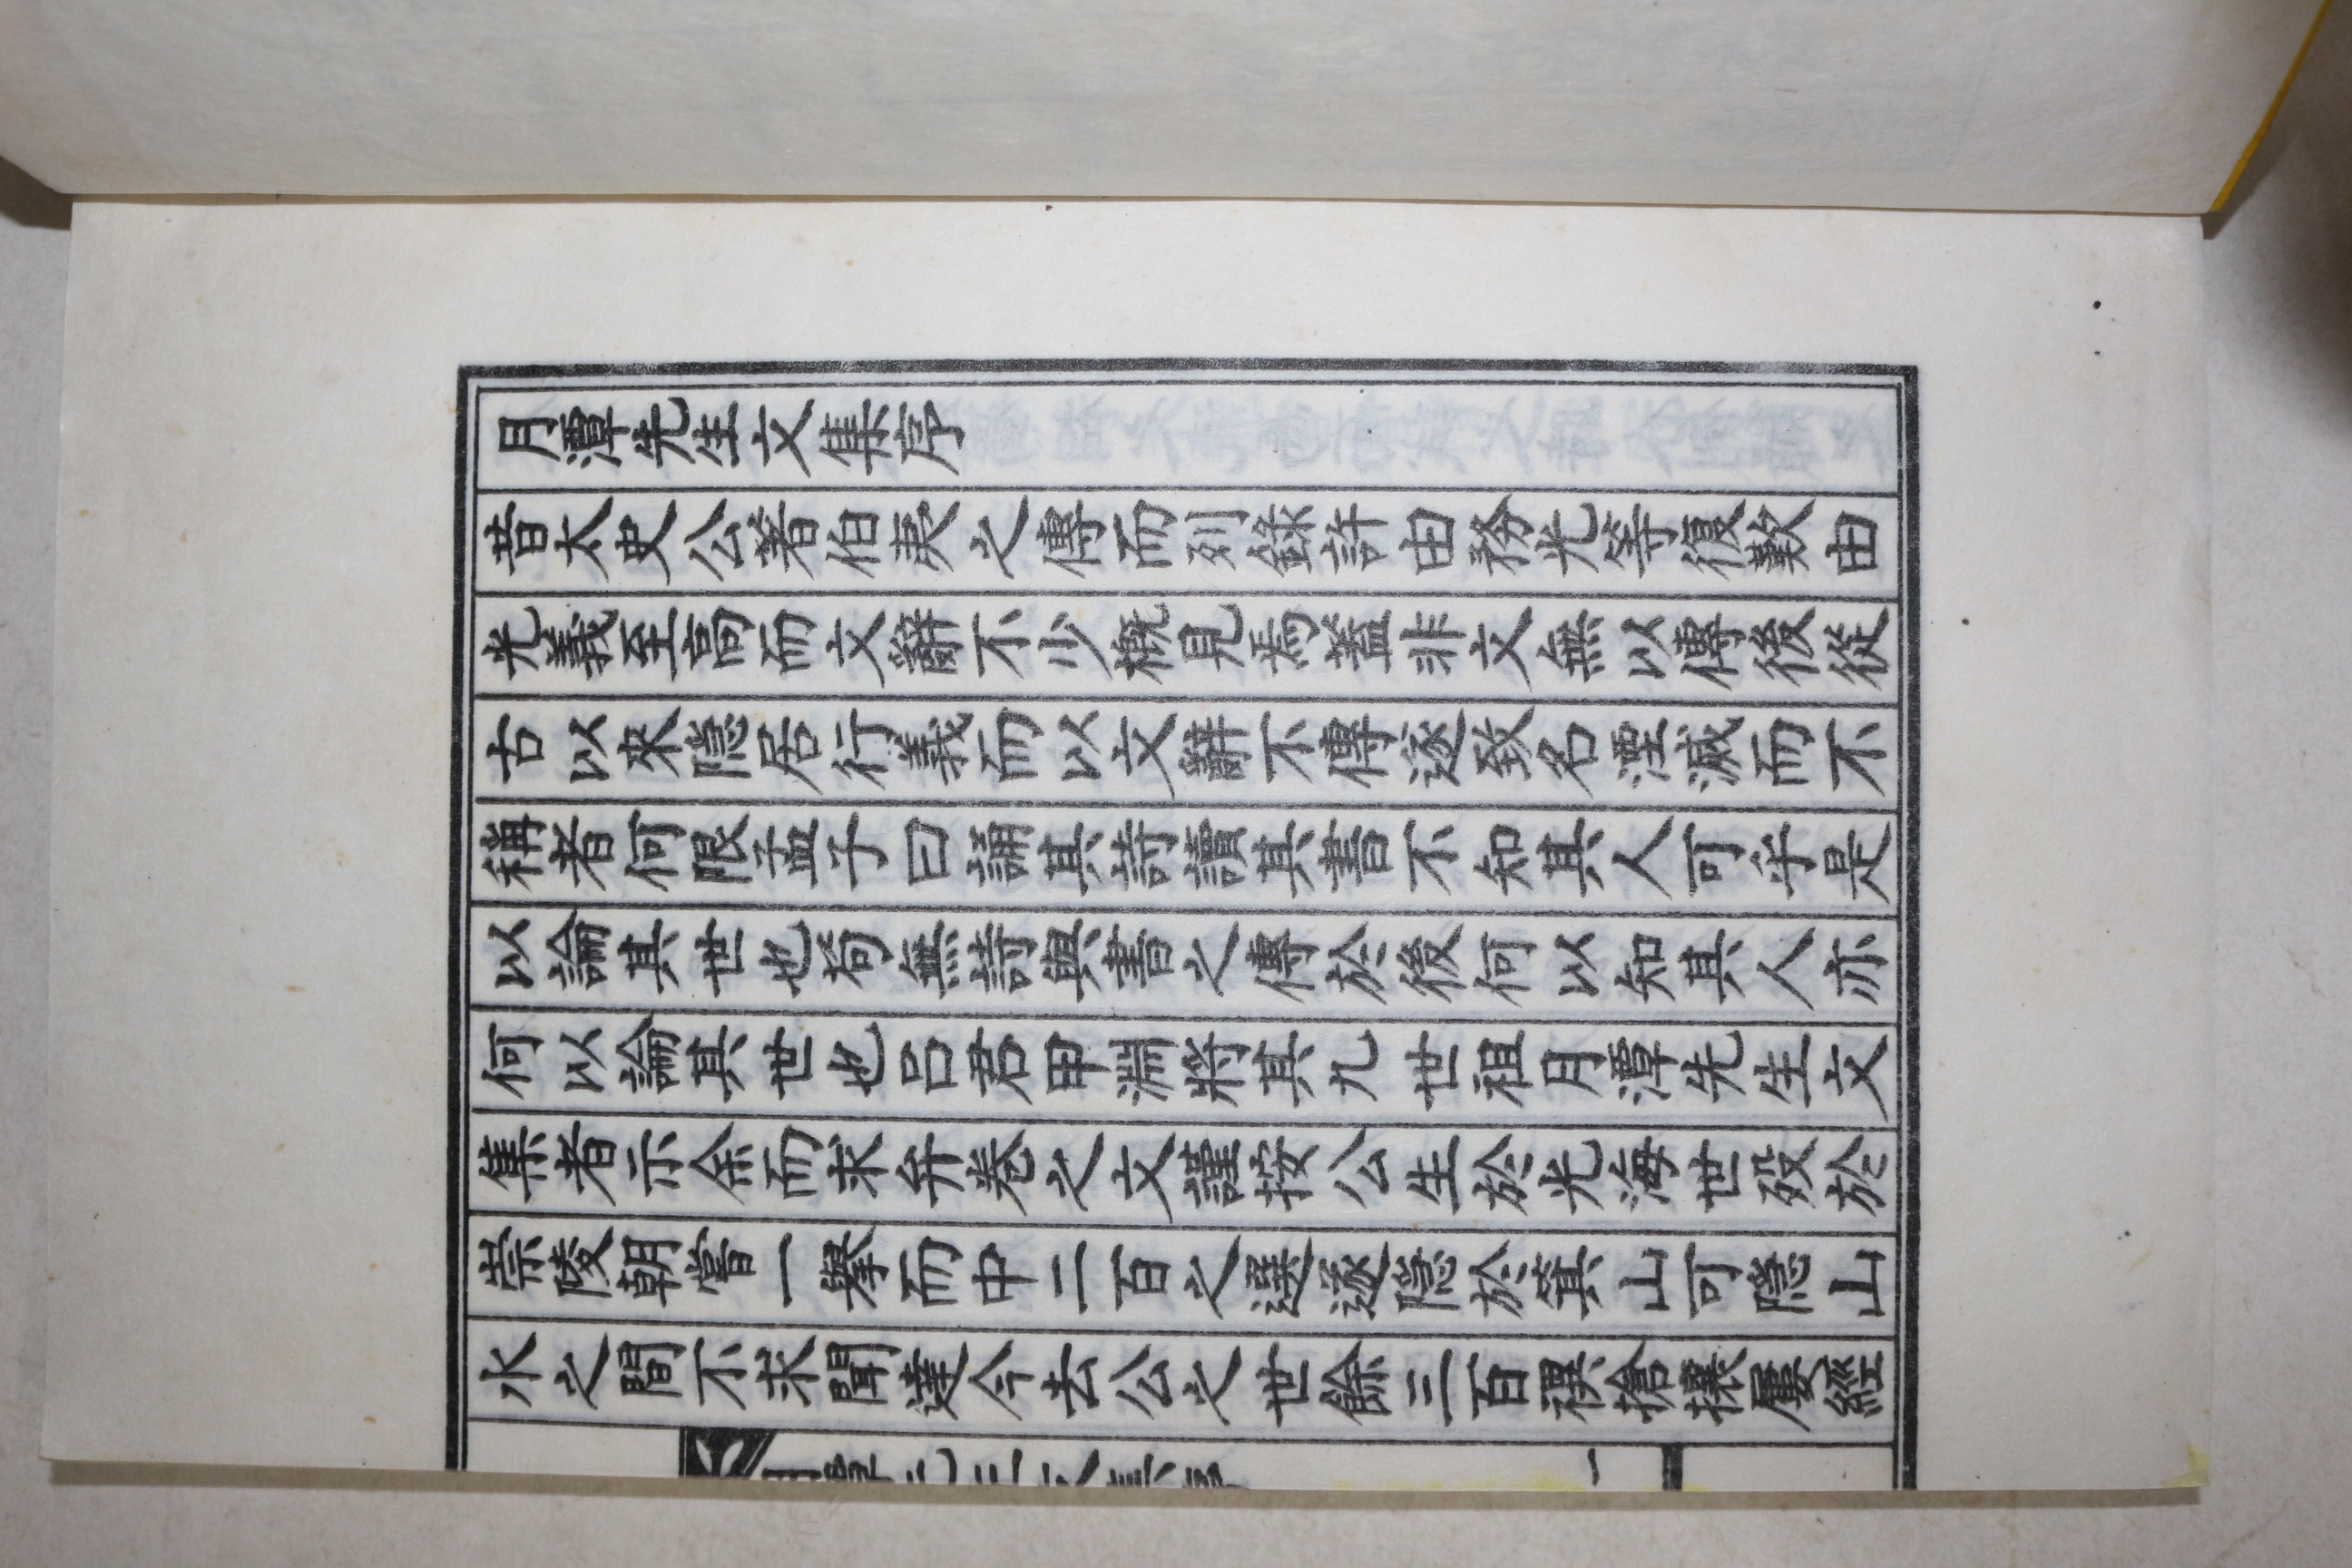 月潭先生文集序
昔太史公著伯夷之傳而列錄許由務光等復歎由
光義至高而文辭不少槪見焉蓋非文無以傳後從
古以來隱居行義而以文辭不傳遂致名湮滅而不
稱者何限孟子曰誦其詩讀其書不知其人可乎是
以論其世也苟無詩與書之傳於後何以知其人亦
何以論其世也呂君甲淵將其九世祖月潭先生文
集者示余而求弁卷之文謹按公生於光海世歿於
崇陵朝嘗一擧而中二百之選遂隱於箕山可隱山
水之間不求聞達今去公之世餘三百禩搶攘屢經